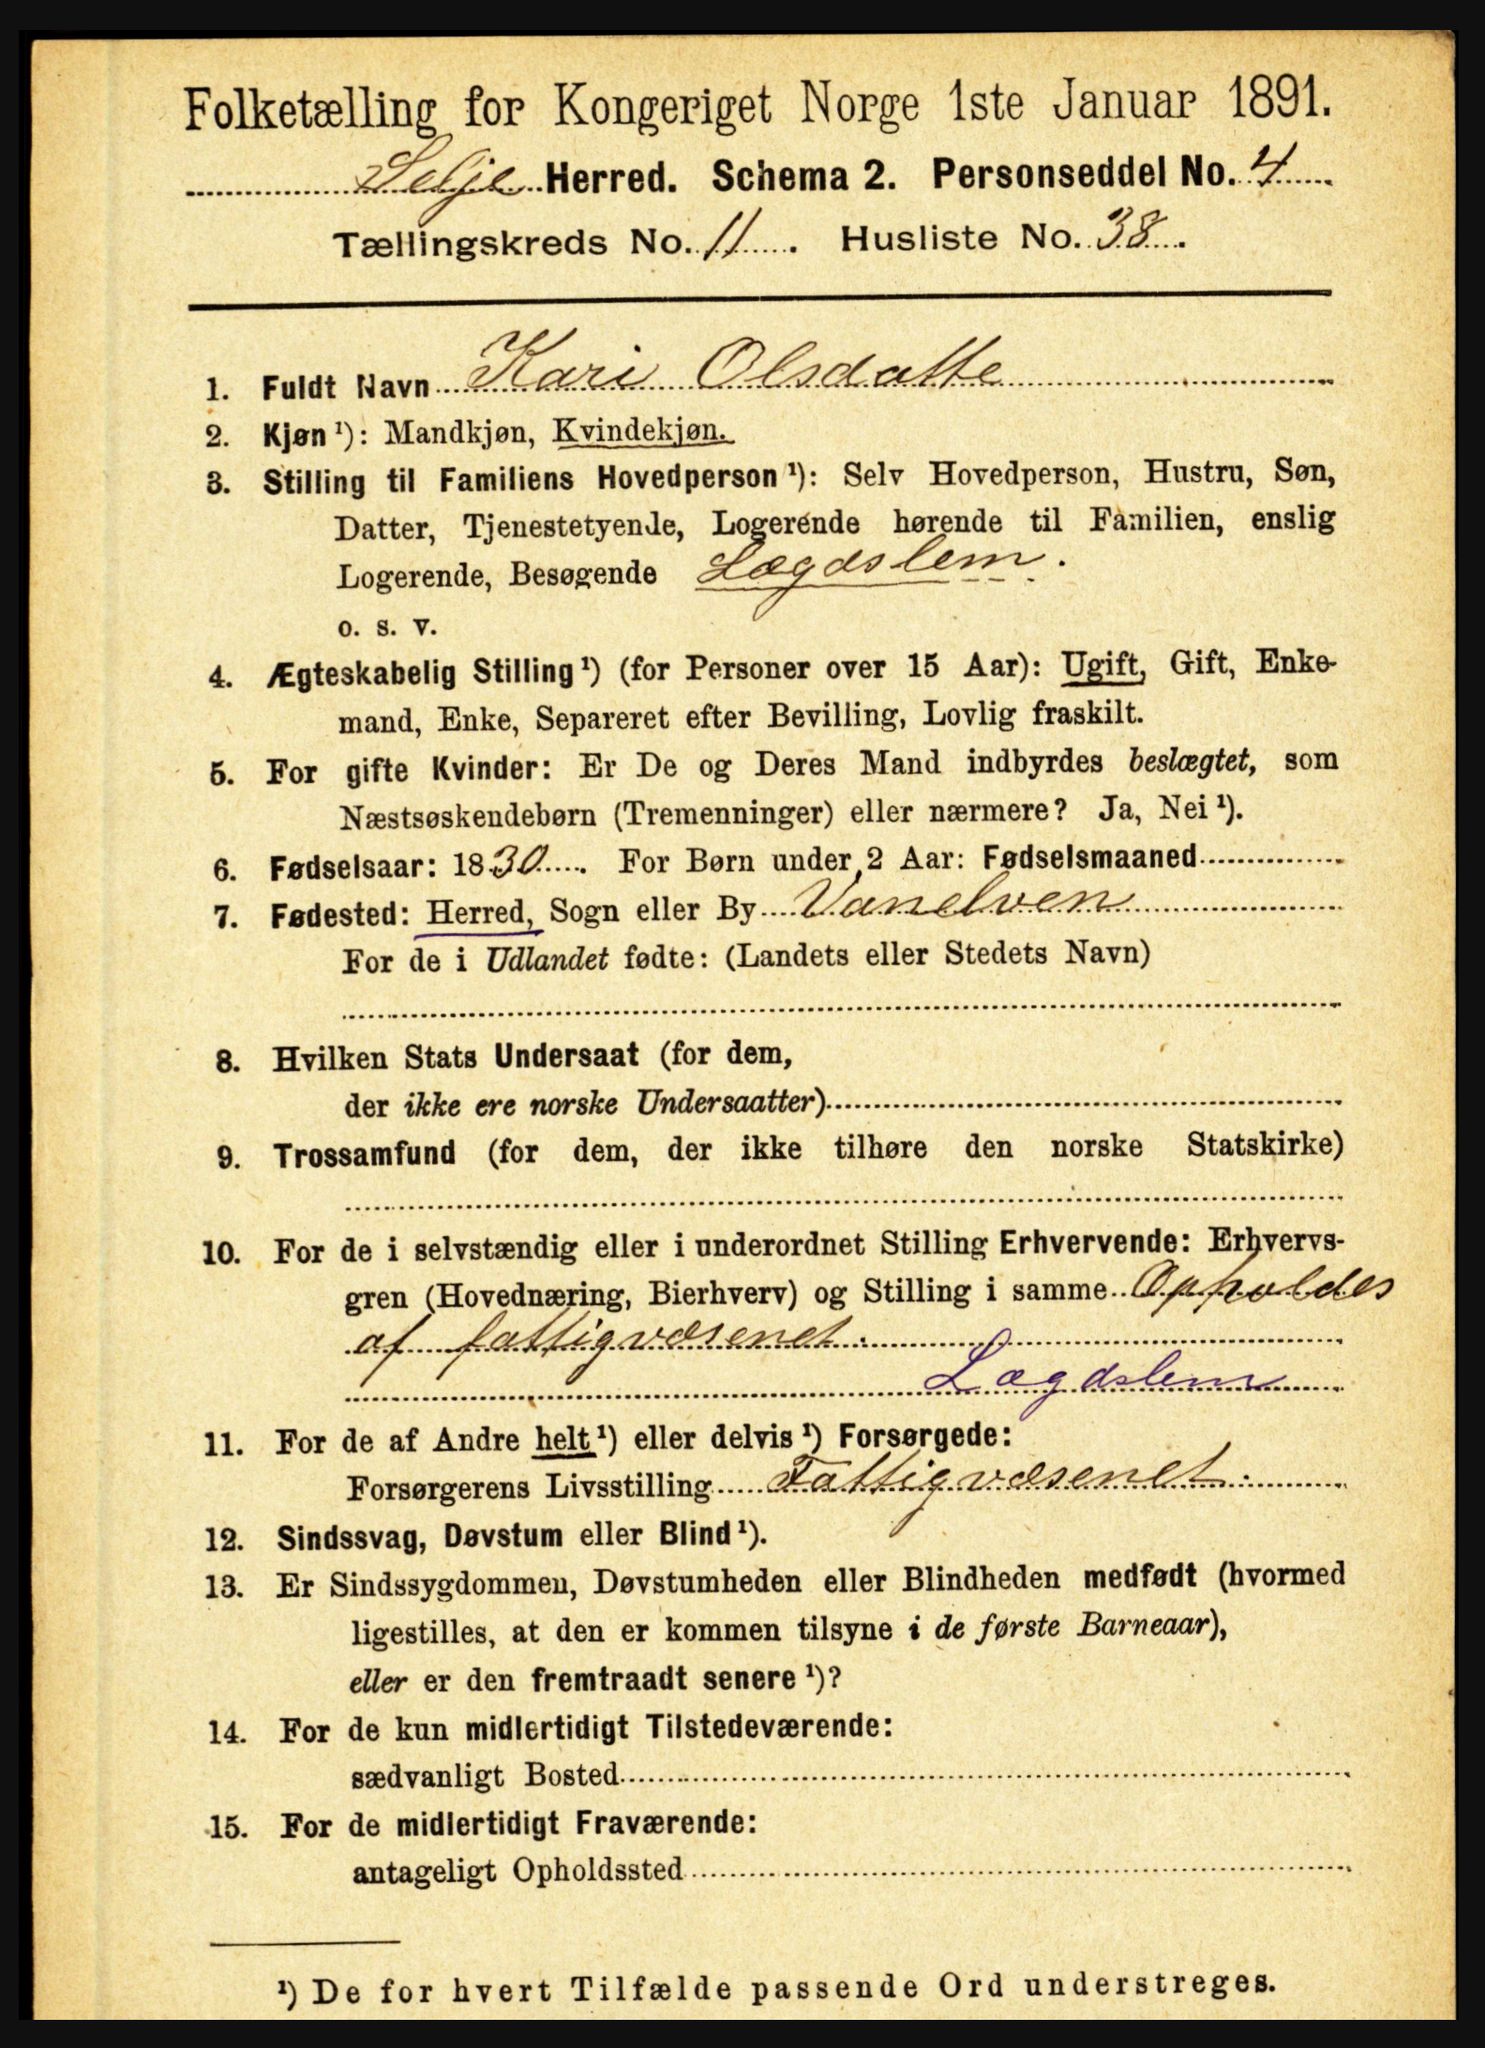 Folketælling for Kongeriget Norge 1ste Januar 1891.
Selje Herred. Schema 2. Personseddel No. 4
Tællingskreds No. 11. Husliste No. 38.
1. Fuldt Navn Kari Olsdatte
2. Kjøn¹): Mandkjøn, Kvindekjøn.
3. Stilling til Familiens Hovedperson¹): Selv Hovedperson, Hustru, Søn,
Datter, Tjenestetyende, Logerende hørende til Familien, enslig
Logerende, Besøgende Lægdslem.
o. s. v.
4. Ægteskabelig Stilling¹) (for Personer over 15 Aar): Ugift, Gift, Enke-
mand, Enke, Separeret efter Bevilling, Lovlig fraskilt.
5. For gifte Kvinder: Er De og Deres Mand indbyrdes beslægtet, som
Næstsøskendebørn (Tremenninger) eller nærmere? Ja, Nei¹).
6. Fødselsaar: 1830. For Børn under 2 Aar: Fødselsmaaned
7. Fødested: Herred, Sogn eller By Vanelven
For de i Udlandet fødte: (Landets eller Stedets Navn)
8. Hvilken Stats Undersaat (for dem,
der ikke ere norske Undersaatter)
9. Trossamfund (for dem, der ikke tilhøre den norske Statskirke)
10. For de i selvstændig eller i underordnet Stilling Erhvervende: Erhvervs-
gren (Hovednæring, Bierhverv) og Stilling i samme Opholdes
af fattigvæsenet.
Lægdslem
11. For de af Andre helt¹) eller delvis¹) Forsørgede:
Forsørgerens Livsstilling Fattigvæsenet.
12. Sindssvag, Døvstum eller Blind¹).
13. Er Sindssygdommen, Døvstumheden eller Blindheden medfødt (hvormed
ligestilles, at den er kommen tilsyne i de første Barneaar),
eller er den fremtraadt senere¹)?
14. For de kun midlertidigt Tilstedeværende:
sædvanligt Bosted
15. For de midlertidigt Fraværende:
antageligt Opholdssted
¹) De for hvert Tilfælde passende Ord understreges.